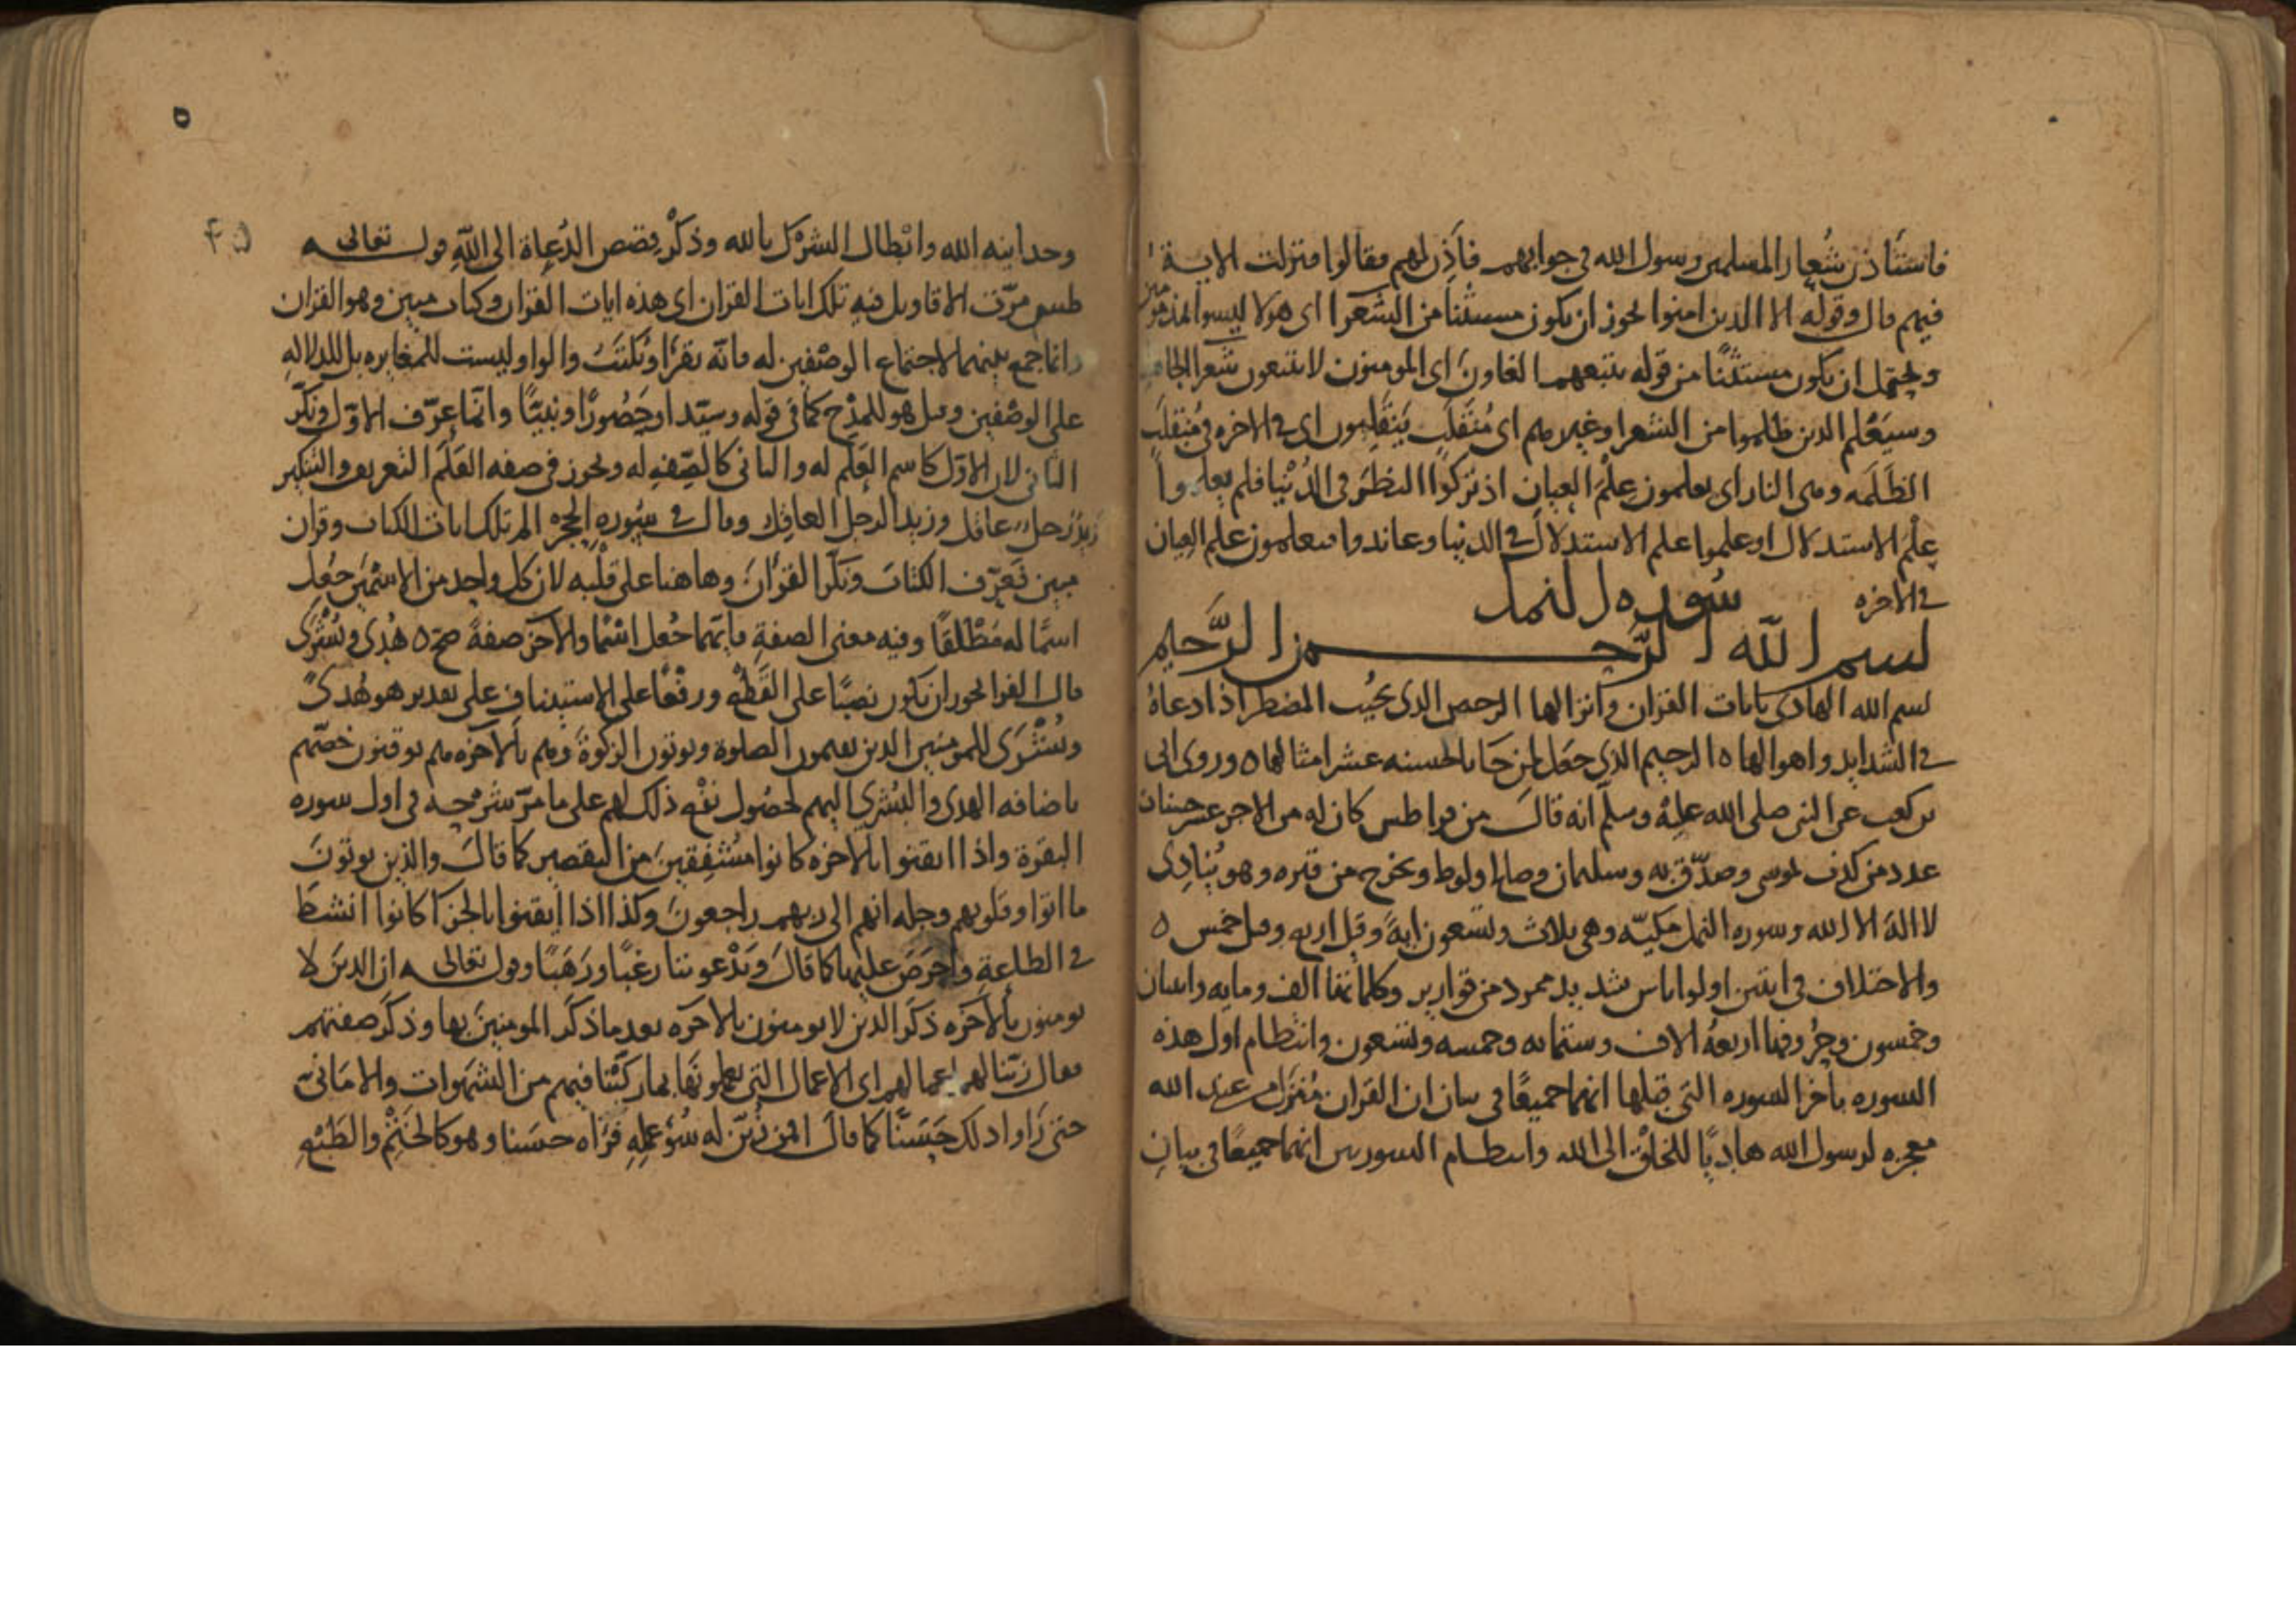 فاستأذن شعار المسلمين رسول الله في جوابهم فأذن لهم فقالوا فنزلت الاية
فيهم قال وقوله الا الذين امنوا يجوز ان يكون مستثنا من الشعرا اى هولا ليسوا المذمومين
ويحتمل ان يكون مستثنًا من قوله يتبعهم الغاون اى المومنون لا يتبعون شعرا
وسيَعْلم الدين ظلموا من الشعرا وغيرهم اى مُنقَلَبٍ يَنقلِبون اى في الاخرة في مُنقلَب
الظَلَمه وهى النار اى يعلمون عِلْمَ العيان اذ تركوا النظَر في الدُنْيا فلم يعلموا
عِلْمَ الاستدلال او علموا علم الاستدلال في الدنيا وعاندوا فيعلمون علم العِيان
في الاخره
سُوره النمل
بسم الله الرّحمن الرَّحيم
بسم الله الهادى بايات القران وانزالها الرحمن الذى يجُيب المضطر اذا دعاهُ
في الشدايد واهوالها ٥ الرحيم الذى جعَل لمن جَا بالحسنه عشر امثالها ٥ وروى ابى
بن كعب عن النبى صلى الله عليْه وسلّم انه قالَ من قرا طس كان له من الاجر عشر حسنات
عدد من كذب لموسى وصدّق به وسليمان وصالح ولوط ويخرج من قبره وهو يُنادِى
لا الهَ الا الله وسوره النمل مكيّه وهى ثلاث وتسعون ايةً وقيل اربع وقيل خمس ٥
والاختلاف في ايتين اولوا باس شديد ممرد من قوارير وكلماتها الف ومايه واثنان
وخمسون وحُروفها اربعهُ الاف وستمايه وخمسه وتسعون وانتظام اول هذه
السوره باخر السوره التى قبلها انهما جميعًا في بيان ان القران مُنَزل من عند الله
معجزه لرسول الله هاديًا للخلق الى الله وانتظام السورتين انهما جميعًا في بيانِ
٥
وحدانيه الله وابْطال الشرْك بالله وذكْر قصص الدُعاة الى اللهِ قوله تعالى
طس مرّت الاقاويل فيه تلك ايات القران اى هذه ايات القران وكتاب مبين وهو القران
وانما جمع بينهما لاجتماع الوصْفين له فانه يقرَأُ ويُكْتَبُ والواو ليست للمغايره بل للدلالهِ
على الوصْفين وقيل هو للمدْح كما في قوله وسيّدا وحَصُورًا ونبيًّا وانّما عرّف الاوّل ونكّر
الثانى لان الاوّل كاسم العَلَم له والثانى كالصِّفهِ له ويجوز في صفه العَلَم التعريف والتنكير
زيدٌ رجلٌ عاقل وزيد الرجل العاقِل وقال في سُوره الحِجر الر تلك ايات الكتاب وقران
مبين فَعَرّف الكتابَ ونكّر القرْانَ وها هنا على قلْبه لان كل واحد من الاسْمَيْن جُعِل
اسمًا له مُطْلقًا وفيه معنى الصفةِ فايّهما جُعل اسْمًا والاخَر صفةً صحّ ٥ هُدًى وبُشْرَى
قال الفرا يجوز ان يكون نصبًا على القَطْع ورفعًا على الاستيناف على تقدير هو هُدىً
وبُشْرَى للمومنين الذين يقيمون الصلوة ويوتون الزكوةَ وهم بالاخره هم يوقنون خصّهم
باضافه الهدى والبُشْرى اليهم لحصُول نفْعِ ذلك لهم على ما مرّ شرْحه في اول سوره
البقرة واذا ايقنوا بالاخره كانوا مُشْفِقينَ من التقصير كما قالَ والذين يوتونَ
ما اتوا وقلوبهم وجله انهم الى ربهم راجعونَ وكذا اذا ايقنوا بالجزا كانوا انشطَ
في الطاعةِ واحرَصَ عليها كما قالَ ويَدْعوننا رغبًا ورَهَبًا وقوله تعالى ان الدينَ لا
يومنون بالاخَره ذكَر الدين لا يومنون بالاخَره بعد ما ذكَر المومنينَ بها وذكَر صفتهم
فقال زيّنا لهم اعمالهم اى الاعمال التى يعملونَها بما ركّبْنا فيهم من الشهوات والامَانىّ
حتى رَاوا ذلك حَسَنًا كما قالَ افمن زُيّن له سُوُ عملِهِ فرَاه حسَنا وهو كالخَتْمِ والطَبْعِ